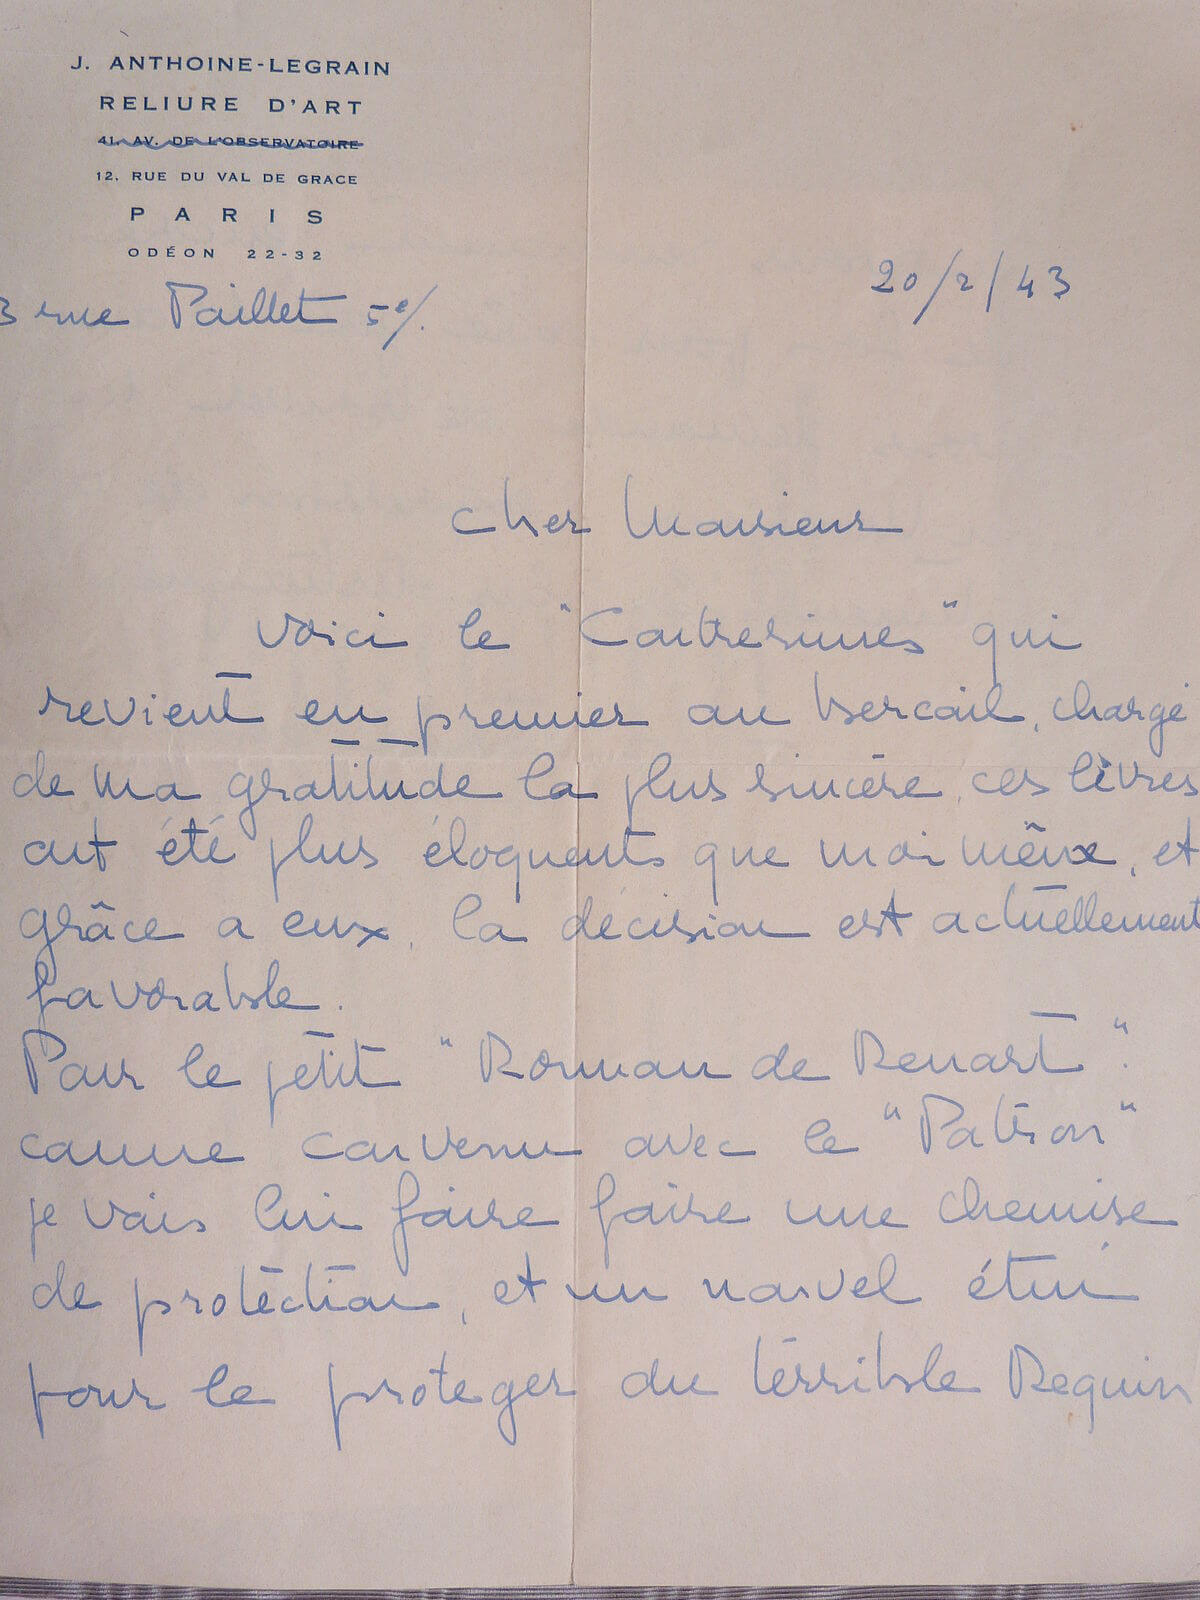 J. ANTHOINE-LEGRAIN
RELIURE D'ART
41. AV. DE L'OBSERVATOIRE
12. RUE DU VAL DE GRACE
PARIS
ODÉON 22-32
3 rue Paillet 5e/.
20/2/43
Cher Monsieur
Voici le "Contrerimes" qui
revient en premier au bercail, chargé
de ma gratitude la plus sincère, ces livres
ont été plus éloquents que moi même, et
grâce a eux, la décision est actuellement
favorable.
Pour le petit "Roman de Renart".
comme convenu avec le "Patron"
je vais lui faire faire une chemise
de protection, et un nouvel étui
pour le proteger du terrible Requin